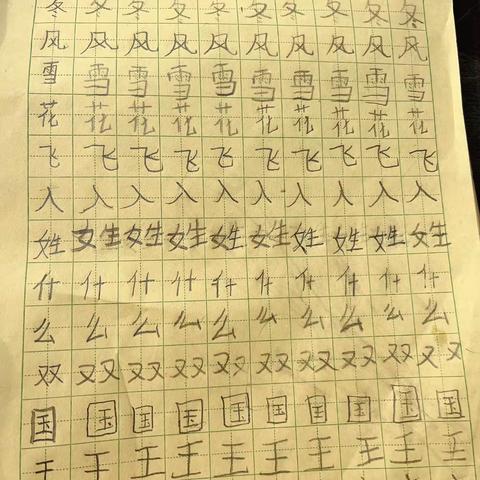 冬 冬 冬 冬 冬 冬 冬 冬 冬 冬
风 风 风 风 风 风 风 风 风 风
雪 雪 雪 雪 雪 雪 雪 雪 雪 雪
花 花 花 花 花 花 花 花 花 花
飞 飞 飞 飞 飞 飞 飞 飞 飞 飞
入 入 入 入 入 入 入 入 入 入
姓 姓 姓 姓 姓 姓 姓 姓 姓 姓
什 什 什 什 什 什 什 什 什 什
么 么 么 么 么 么 么 么 么 么
双 双 双 双 双 双 双 双 双 双
国 国 国 国 国 国 国 国 国 国
王 王 王 王 王 王 王 王 王 王